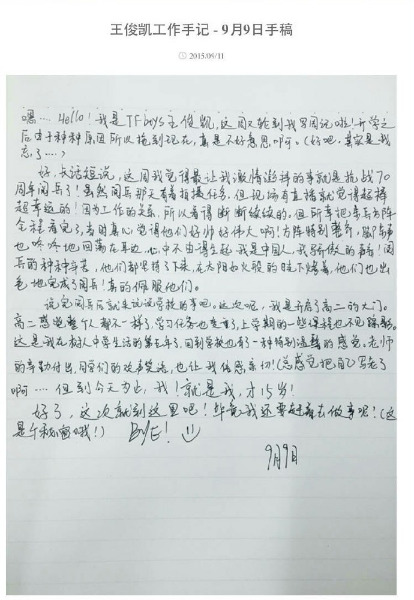 王俊凯工作手记 - 9月9日手稿
2015/09/11
嗯… Hello! 我是TFboys王俊凯,这周又轮到我写周记啦!开学之
后由于种种原因所以拖到现在,真是不好意思啊。(好吧,其实是我
忘了…?)
好,长话短说,这周我觉得最让我激情澎湃的事就是抗战70
周年阅兵了!虽然阅兵那天有着拍摄任务,但现场有直播就觉得超棒
超幸运的!因为工作的关系,所以看得断断续续的,但所幸把重兵方阵
全程看完了,看时真心觉得他们好帅好伟大啊!方阵特别整齐,脚步声
也咚咚地回荡在耳边,心中不由得生起"我是中国人,我骄傲"的声音!阅
兵的种种辛苦,他们都坚持了下来,在太阳如火般的眭下烤着,他们也出
色地完成了阅兵!真的佩服他们。
说完阅兵后就来说说学校的事吧。这次呢,我是开启了高二的大门。
高二感觉整个人都不一样了,学习任务也变重了,上学期的一些课程也不见踪影。
这是我在树人中学生活的第五年了,回到学校也有一种特别温馨的感觉,老师
的辛勤付出,同学们的欢声笑语,也让我倍感亲切!(总感觉把自己写老了
啊…. 但到今天为止,我!就是我,才15岁!
好了,这次就到这里吧!毕竟我还要赶着去做事呢!(这
是个秘密哦!) BYE!
9月9日